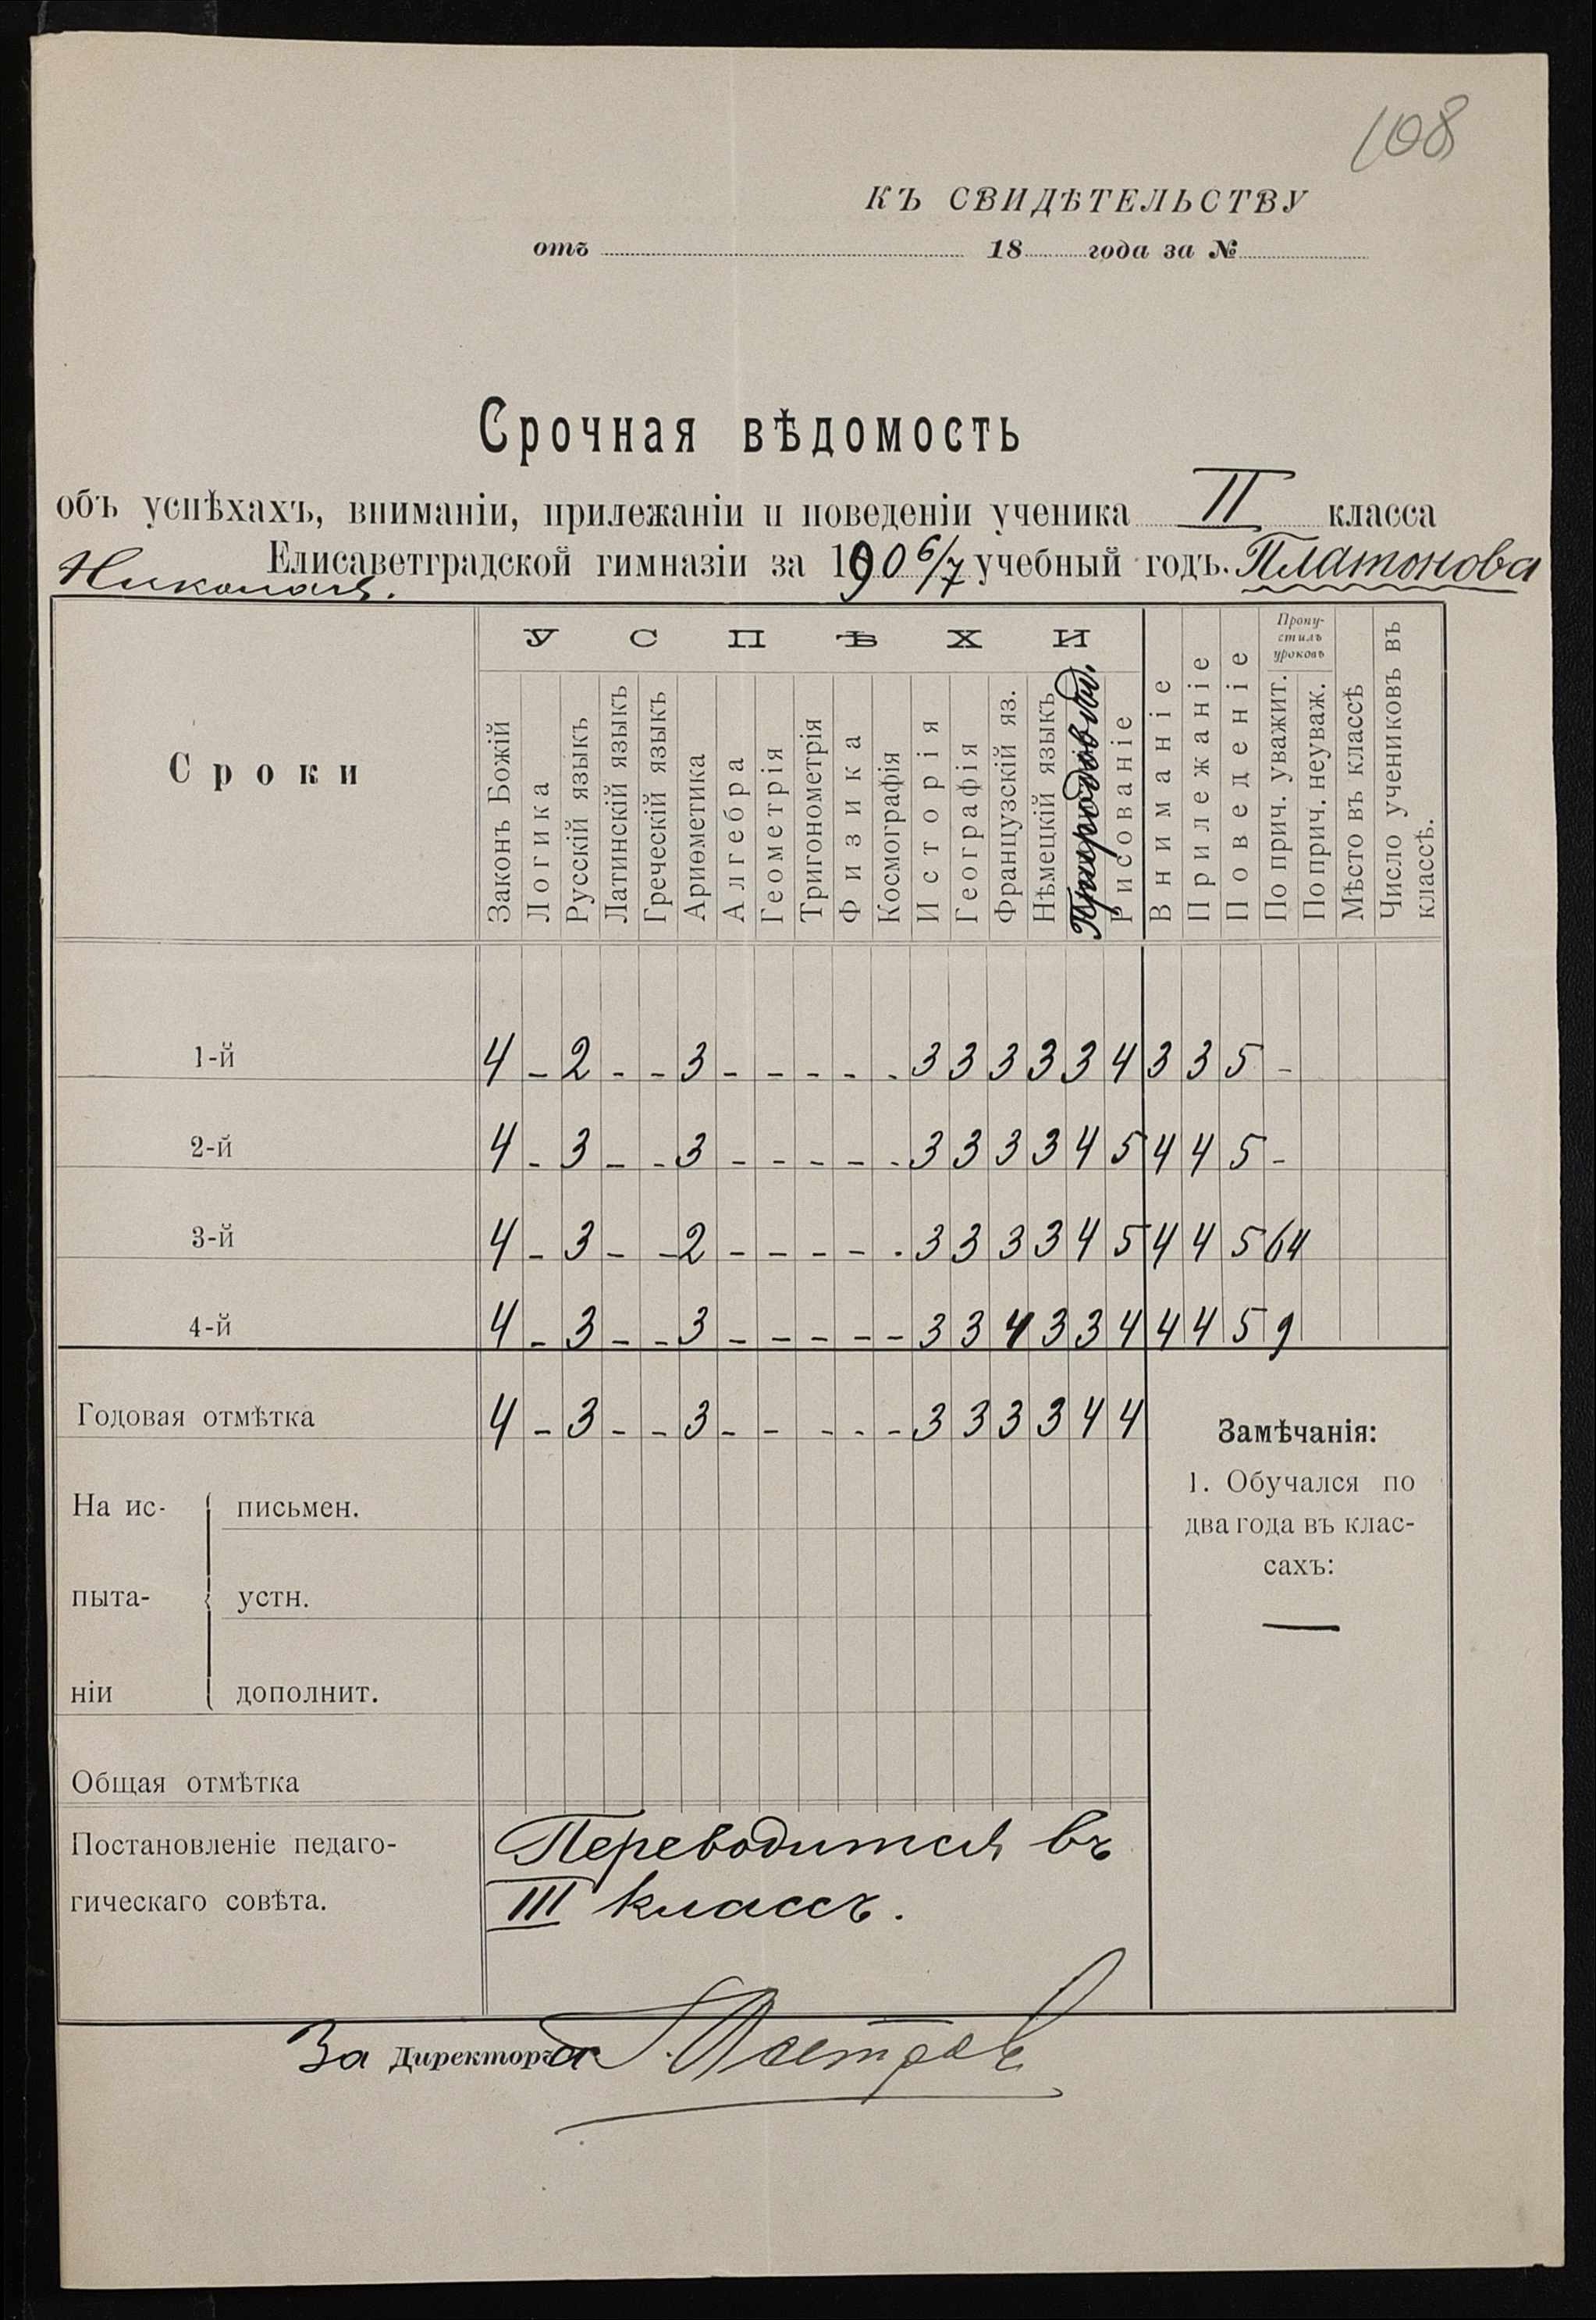 108
КЪ СВИДѢТЕЛЬСТВУ
отъ 18 года за №
Срочная вѣдомость
объ успѣхахъ, вниманіи, прилежаніи и поведеніи ученика II класса
Елисаветградской гимназіи за 190 6/7 учебный годъ. Платонова
Николая.
Сроки
УСПѢХИ
Законъ Божій
Логика
Русскій языкъ
Латинскій языкъ
Греческій языкъ
Ариѳметика
Алгебра
Геометрія
Тригонометрія
Физика
Космографія
Исторія
Географія
Французскій яз.
Нѣмецкій языкъ
Природовѣд.
Рисованіе
Вниманіе
Прилежаніе
Поведеніе
Пропу-
стилъ
уроковъ
По прич. уважит.
По прич. неуваж.
Мѣсто въ классѣ
Число учениковъ въ
классѣ.
1-й 4 - 2 - - 3 - - - - - 3 3 3 3 3 4 3 3 5 -
2-й 4 - 3 - - 3 - - - - - 3 3 3 3 4 5 4 4 5 -
3-й 4 - 3 - - 2 - - - - - 3 3 3 3 4 5 4 4 5 64
4-й 4 - 3 - - 3 - - - - - 3 3 4 3 3 4 4 4 5 9
Годовая отмѣтка 4 - 3 - - 3 - - - - - 3 3 3 3 4 4
Замѣчанія:
1. Обучался по
два года въ клас-
сахъ:
—
На ис- письмен.
пыта- устн.
ніи дополнит.
Общая отмѣтка
Постановленіе педаго- Переводится въ
гическаго совѣта. III классъ.
За Директора